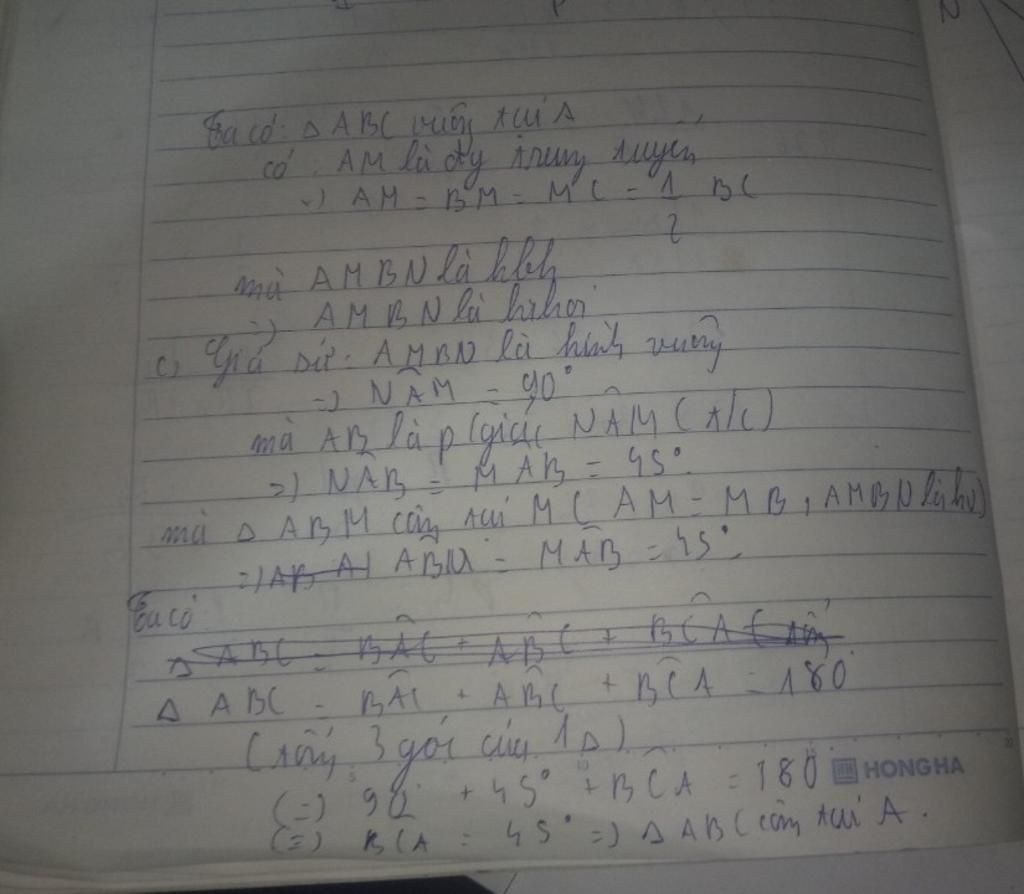 N
Ta có: Δ ABC vuông tại A
có: AM là đg trung tuyến
=) AM = BM = MC = 1/2 BC
mà AMBN là hbh
=) AMBN là hthoi
c, Giả sử: AMBN là hình vuông
=) NÂM = 90°
mà AB là p/giác NÂM (t/c)
=) NÂB = MÂB = 45°
mà Δ ABM cân tại M ( AM = MB, AMBN là hv)
=) ABM = MÂB = 45°
Ta có
Δ ABC = BÂC + ABC + BCA ( tổng
Δ ABC = BÂC + ABC + BCA = 180
(tổng 3 góc của 1Δ)
(=) 90 + 45° + BCA = 180 HONG HA
(=) BCA = 45° =) Δ ABC cân tại A.